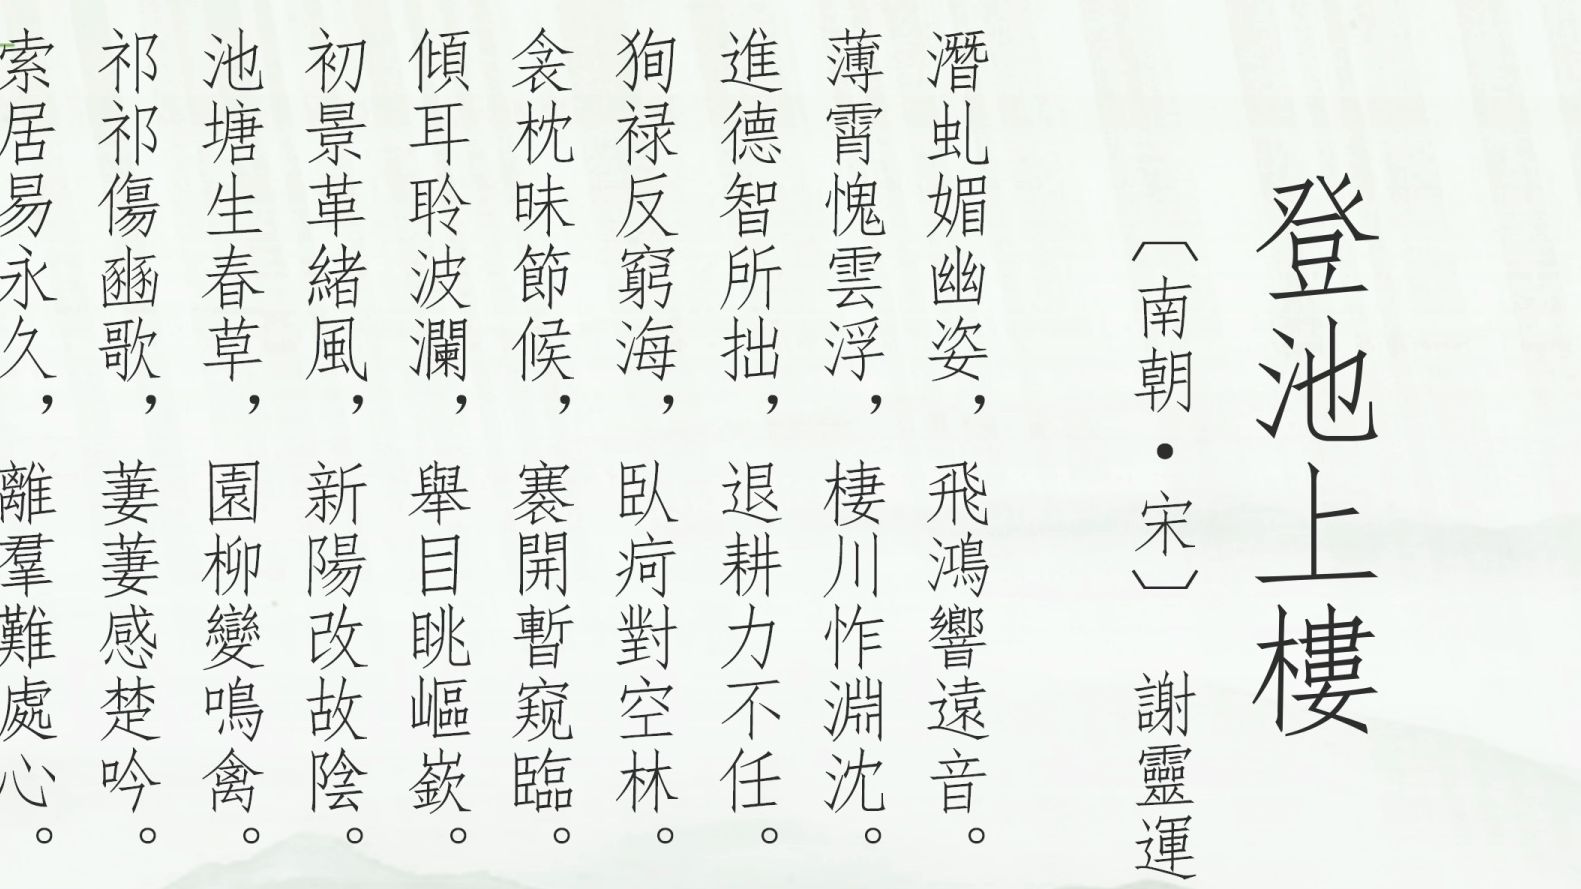 登池上樓
〔南朝·宋〕 謝靈運
潛虬媚幽姿，飛鴻響遠音。
薄霄愧雲浮，棲川怍淵沈。
進德智所拙，退耕力不任。
狥禄反窮海，臥痾對空林。
衾枕昧節候，褰開暫窺臨。
傾耳聆波瀾，舉目眺嶇嶔。
初景革緒風，新陽改故陰。
池塘生春草，園柳變鳴禽。
祁祁傷豳歌，萋萋感楚吟。
索居易永久，離羣難處心。